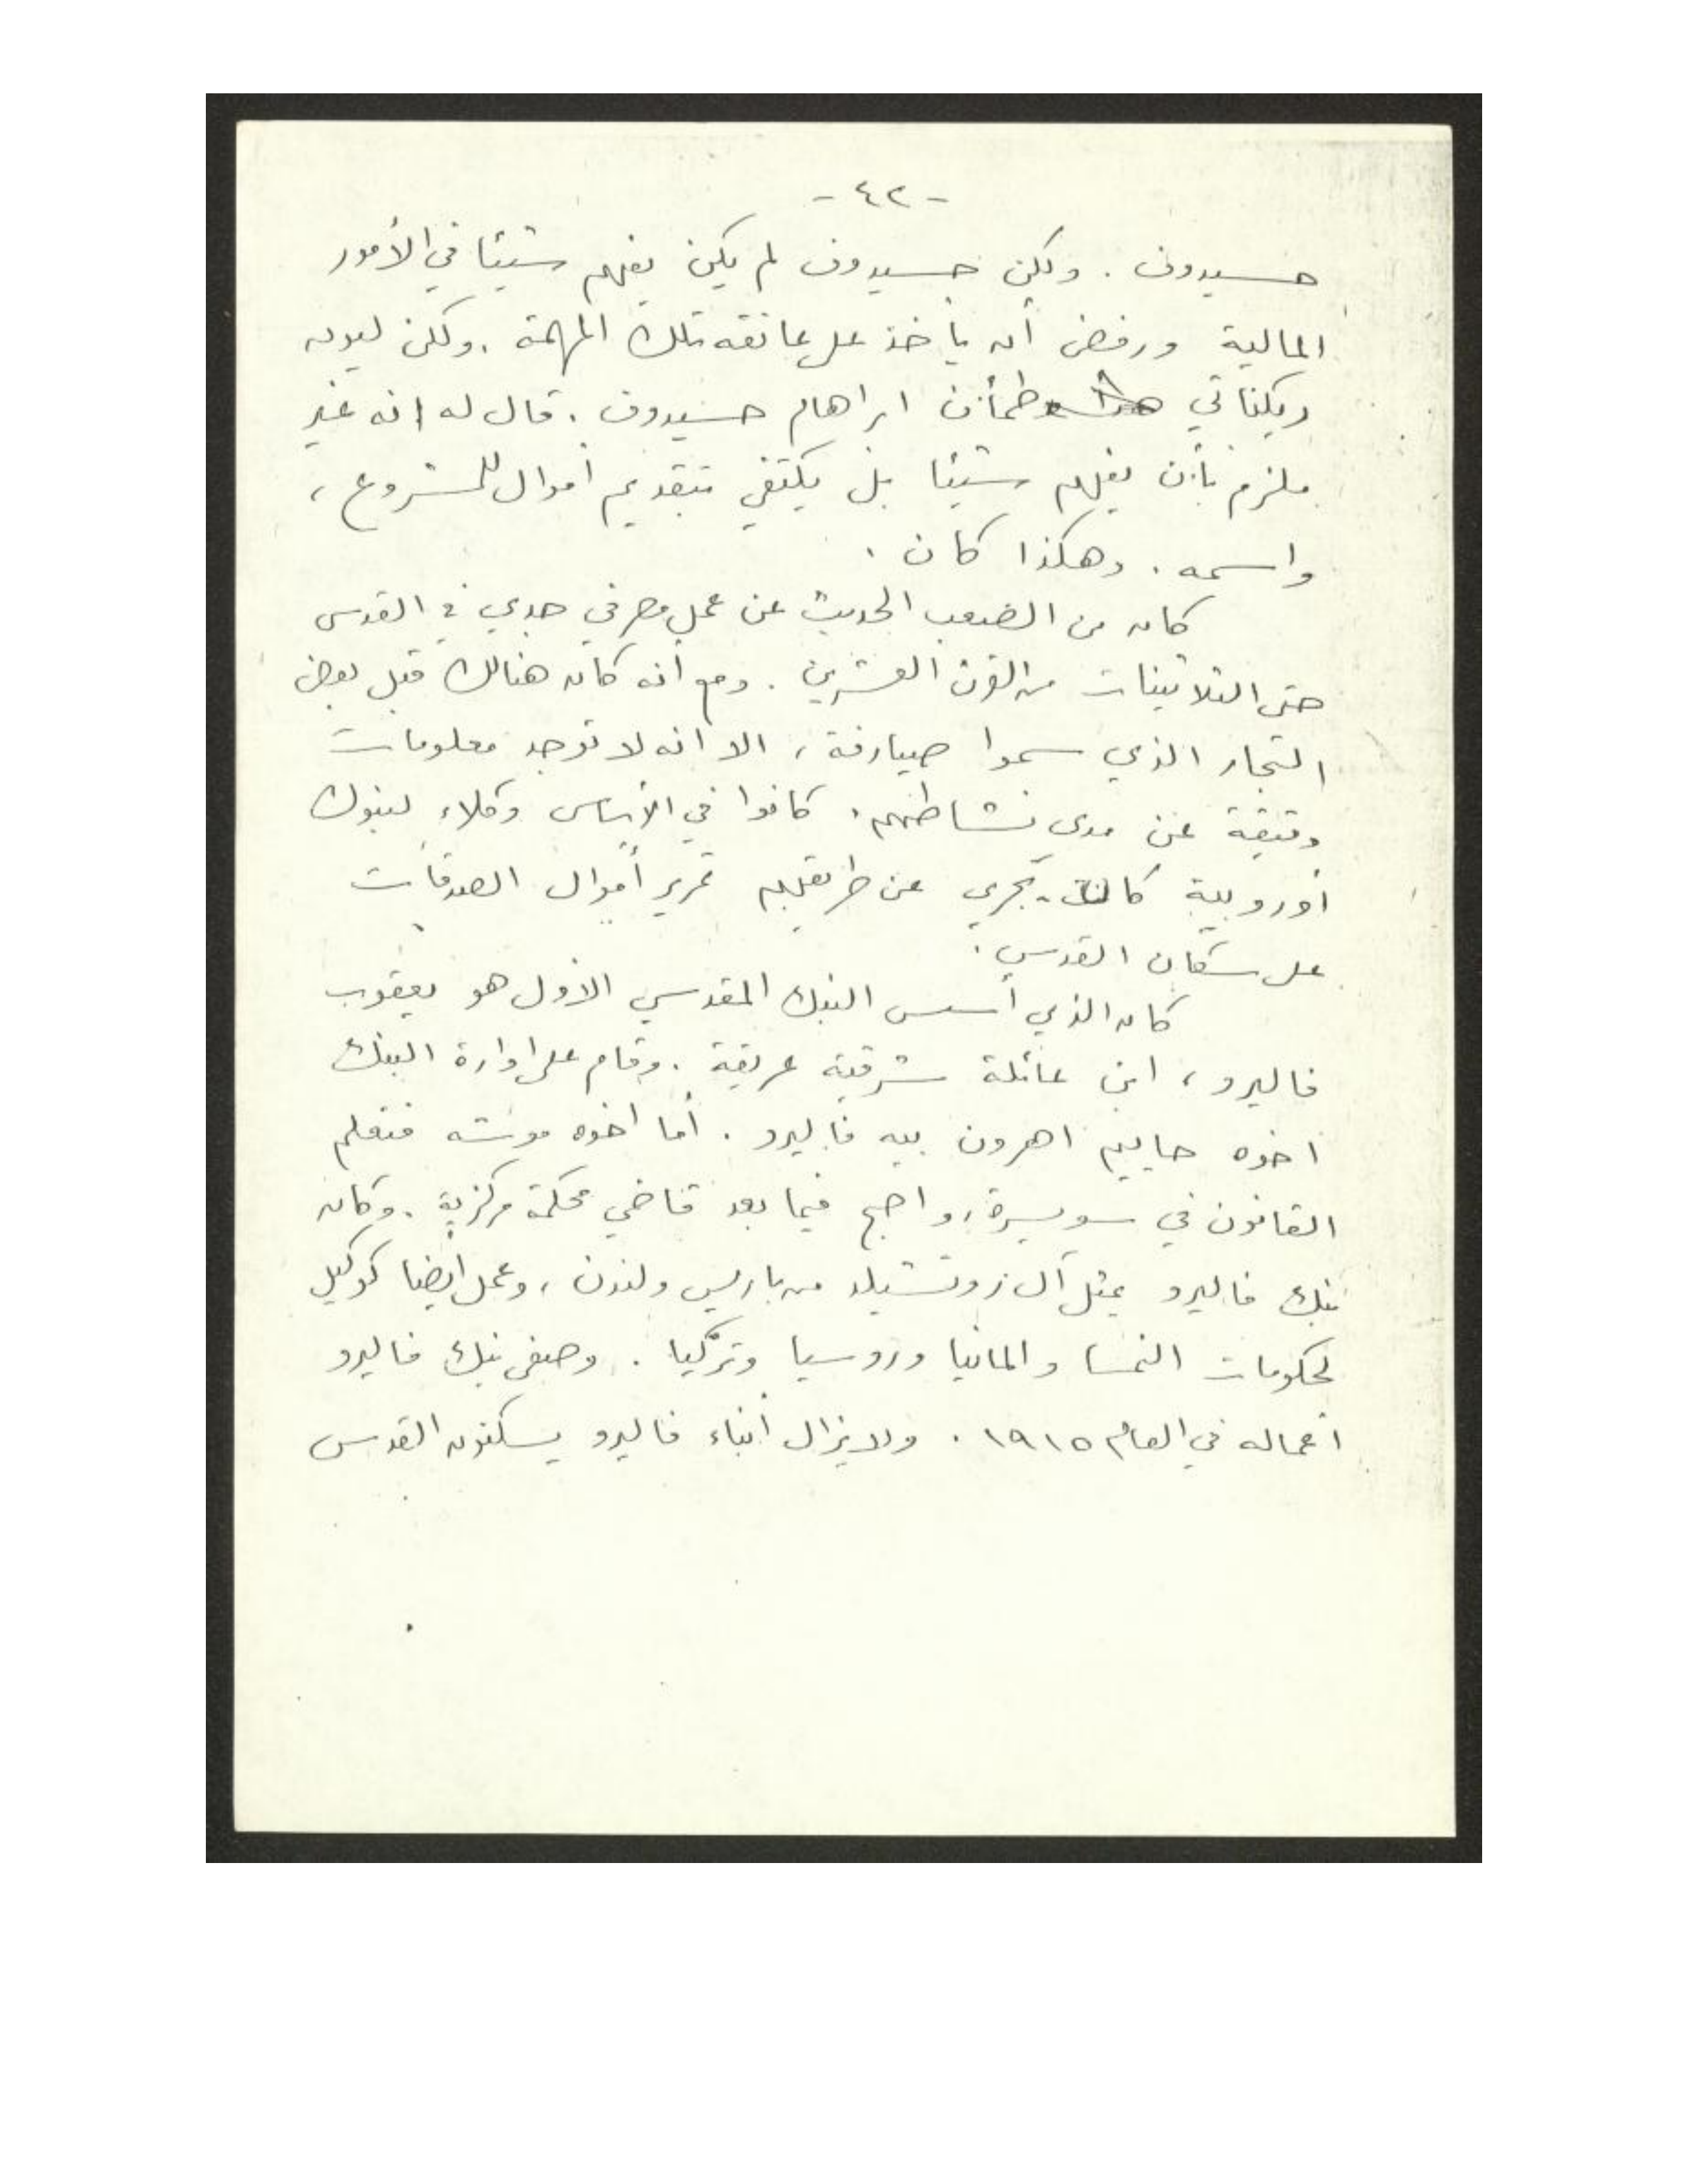 - ٤٢ -
حسيدوف . ولكن حسيدوف لم يكن يفهم شيئا في الأمور
المالية ورفض أن يأخذ على عاتقه تلك المهمة . ولكن ليون
ريكناتي وطمأن ابراهام حسيدوف . قال له انه غير
ملزم بأن يفهم شيئا بل يكتفي بتقديم أموال للمشروع ،
واسمه . وهكذا كان .
كان من الصعب الحديث عن عمل مصرفي جدي في القدس
حتى الثلاثينات من القرن العشرين . ومع أنه كان هنالك قبل بعض
التجار الذي سموا صيارفة ، الا انه لا توجد معلومات
دقيقة عن مدى نشاطهم . كانوا في الأساس وكلاء لبنوك
أوروبية كانت تجري عن طريقهم تمرير أموال الصدقات
على سكان القدس .
كان الذي أسس البنك المقدسي الأول هو يعقوب
فاليرو ، ابن عائلة شرقية عريقة . وقام على ادارة البنك
اخوه حاييم اهرون بيه فاليرو . أما اخوه موشه فتعلم
القانون في سويسرة واصبح فيما بعد قاضي محكمة مركزية . وكان
بنك فاليرو يمثل آل روتشيلد من باريس ولندن ، وعمل ايضا كوكيل
لحكومات النمسا والمانيا وروسيا وتركيا . وصفى بنك فاليرو
أعماله في العام ١٩١٥ . ولا يزال أبناء فاليرو يسكنون القدس